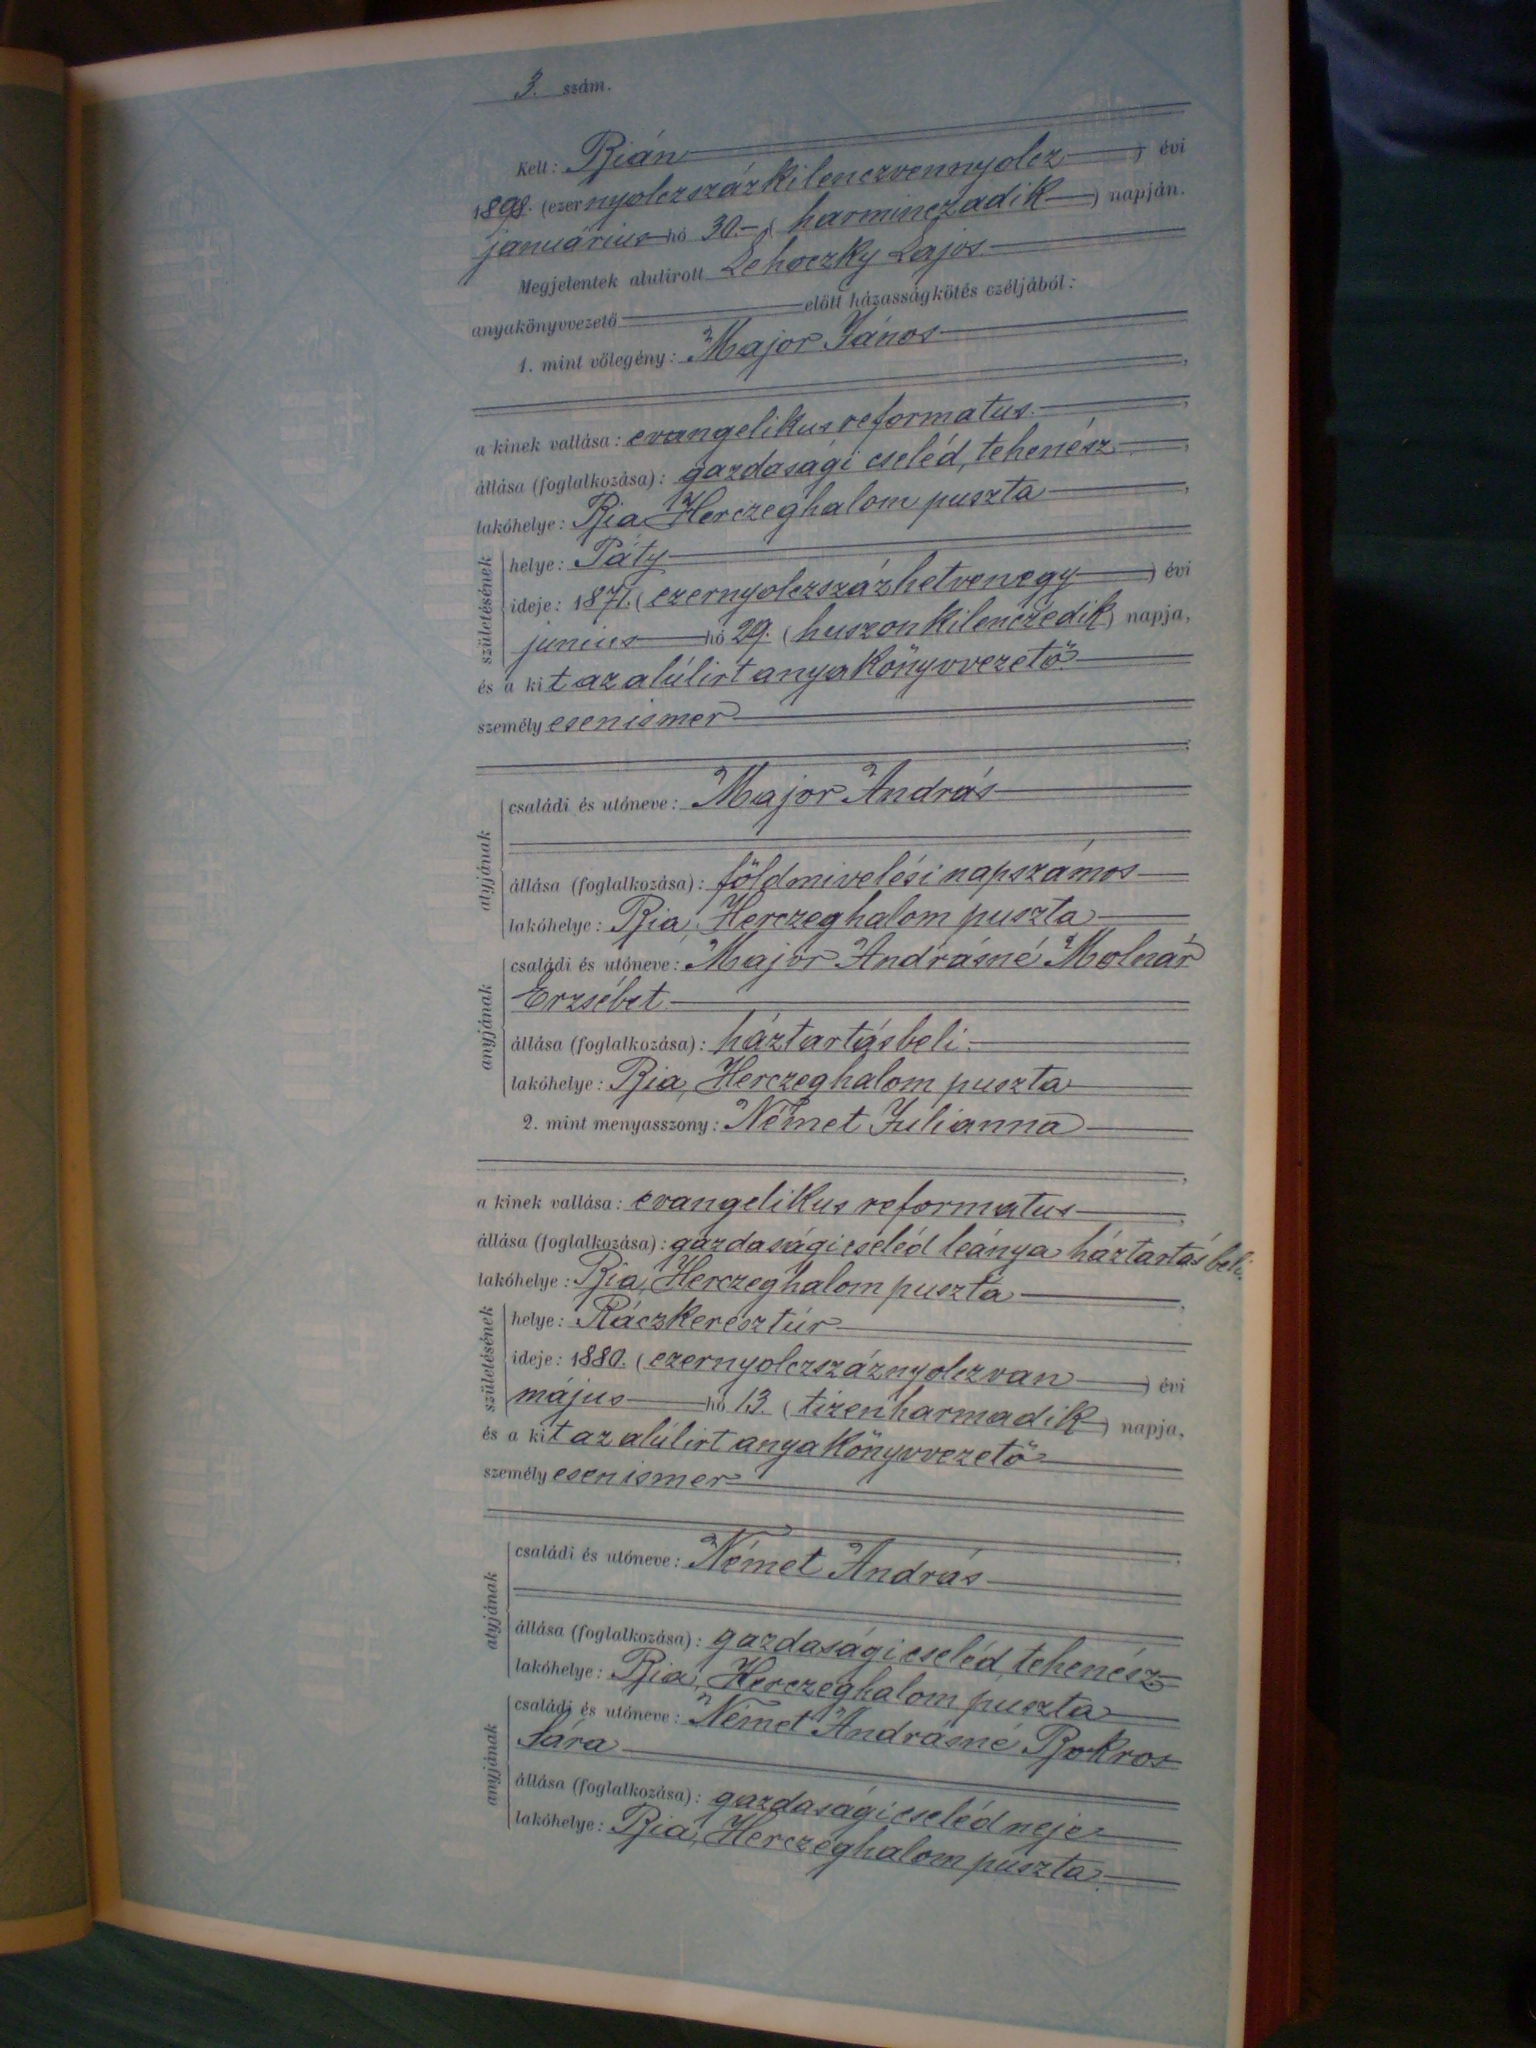 3. szám.
Kelt: Bián
1898. (ezernyolczszázkilenczvennyolcz) évi
januárius hó 30. (harminczadik) napján.
Megjelentek alulirott Lehoczky Lajos
anyakönyvvezető előtt házasságkötés czéljából:
1. mint vőlegény: Major János
a kinek vallása: evangelikus reformatus
állása (foglalkozása): gazdasági cseléd, tehenész
lakóhelye: Bia, Herczeghalom puszta
születésének
helye: Páty
ideje: 1871. (ezernyolczszázhetvenegy) évi
junius hó 29. (huszonkilenczedik) napja,
és a kit az alúlirt anyakönyvvezető
személyesen ismer
atyjának
családi és utóneve: Major András
állása (foglalkozása): földmivelési napszámos
lakóhelye: Bia, Herczeghalom puszta
anyjának
családi és utóneve: Major Andrásné Molnár
Erzsébet
állása (foglalkozása): háztartásbeli
lakóhelye: Bia, Herczeghalom puszta
2. mint menyasszony: Német Julianna
a kinek vallása: evangelikus reformatus
állása (foglalkozása): gazdasági cseléd leánya háztartásbeli
lakóhelye: Bia, Herczeghalom puszta
születésének
helye: Ráczkeresztúr
ideje: 1880. (ezernyolczszáznyolczvan) évi
május hó 13. (tizenharmadik) napja,
és a kit az alúlirt anyakönyvvezető
személyesen ismer
atyjának
családi és utóneve: Német András
állása (foglalkozása): gazdasági cseléd, tehenész
lakóhelye: Bia, Herczeghalom puszta
anyjának
családi és utóneve: Német Andrásné Bokros
Sára
állása (foglalkozása): gazdasági cseléd neje
lakóhelye: Bia, Herczeghalom puszta